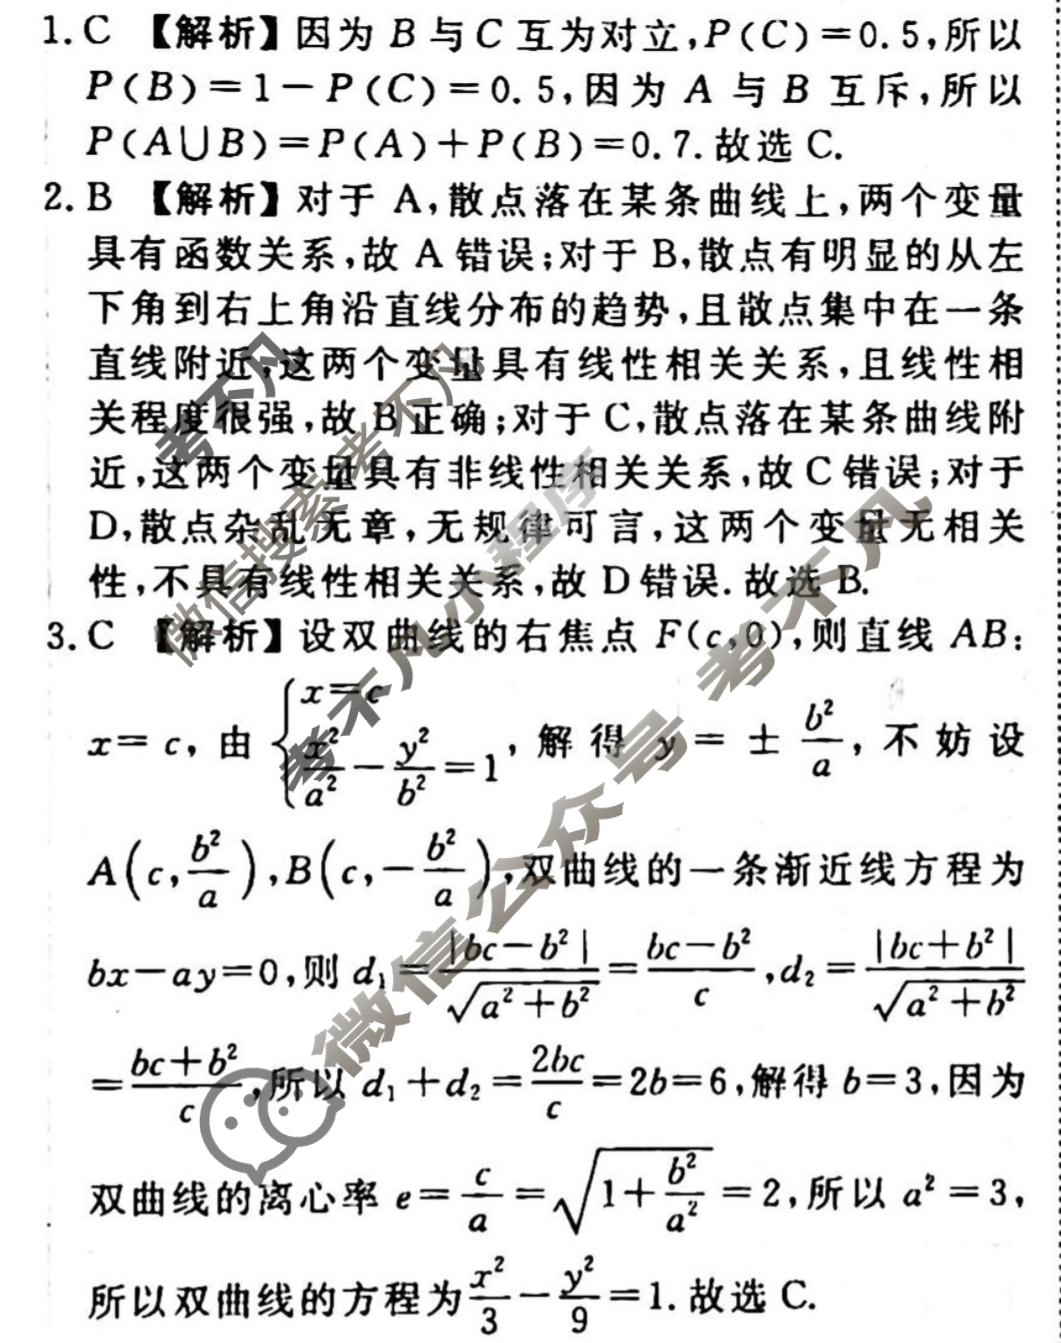 1. C 【解析】因为 B 与 C 互为对立,P(C)=0.5,所以
P(B)=1-P(C)=0.5,因为 A 与 B 互斥,所以
P(A∪B)=P(A)+P(B)=0.7.故选 C.
2. B 【解析】对于 A,散点落在某条曲线上,两个变量
具有函数关系,故 A 错误;对于 B,散点有明显的从左
下角到右上角沿直线分布的趋势,且散点集中在一条
直线附近,这两个变量具有线性相关关系,且线性相
关程度很强,故 B 正确;对于 C,散点落在某条曲线附
近,这两个变量具有非线性相关关系,故 C 错误;对于
D,散点杂乱无章,无规律可言,这两个变量无相关
性,不具有线性相关关系,故 D 错误.故选 B.
3. C 【解析】设双曲线的右焦点 F(c,0),则直线 AB:
x=c,由 {x=c, x²/a² - y²/b² = 1, 解得 y=±b²/a,不妨设
A(c, b²/a), B(c, -b²/a),双曲线的一条渐近线方程为
bx-ay=0,则 d₁=|bc-b²|/√(a²+b²)=(bc-b²)/c,d₂=|bc+b²|/√(a²+b²)
=(bc+b²)/c,所以 d₁+d₂=2bc/c=2b=6,解得 b=3,因为
双曲线的离心率 e=c/a=√(1+b²/a²)=2,所以 a²=3,
所以双曲线的方程为 x²/3 - y²/9 = 1.故选 C.
考不凡
微信搜索考不凡
考不凡小程序
微信公众号 考不凡